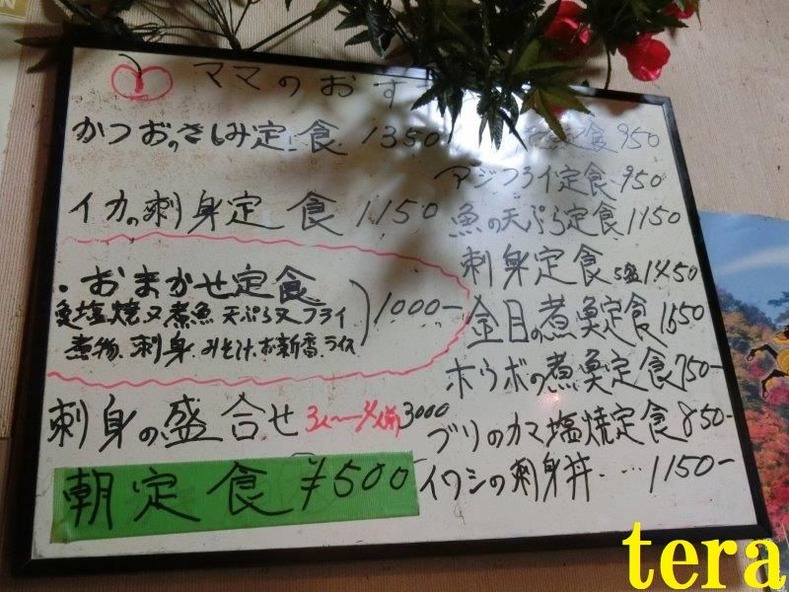 ママのおす
かつおのさしみ定食 1350
イカの刺身定食 1150
・おまかせ定食
魚塩焼又煮魚 天ぷら又フライ
煮物、刺身、みそ汁、お新香、ライス
1000-
刺身の盛合せ 3人〜4人前 3000
朝定食 ¥500
定食 950
アジフライ定食 950
魚の天ぷら定食 1150
刺身定食 5盛 1450
金目の煮魚定食 1650
ホウボの煮魚定食 750-
ブリのカマ塩焼定食 850-
イワシの刺身丼・・・・1150-
tera